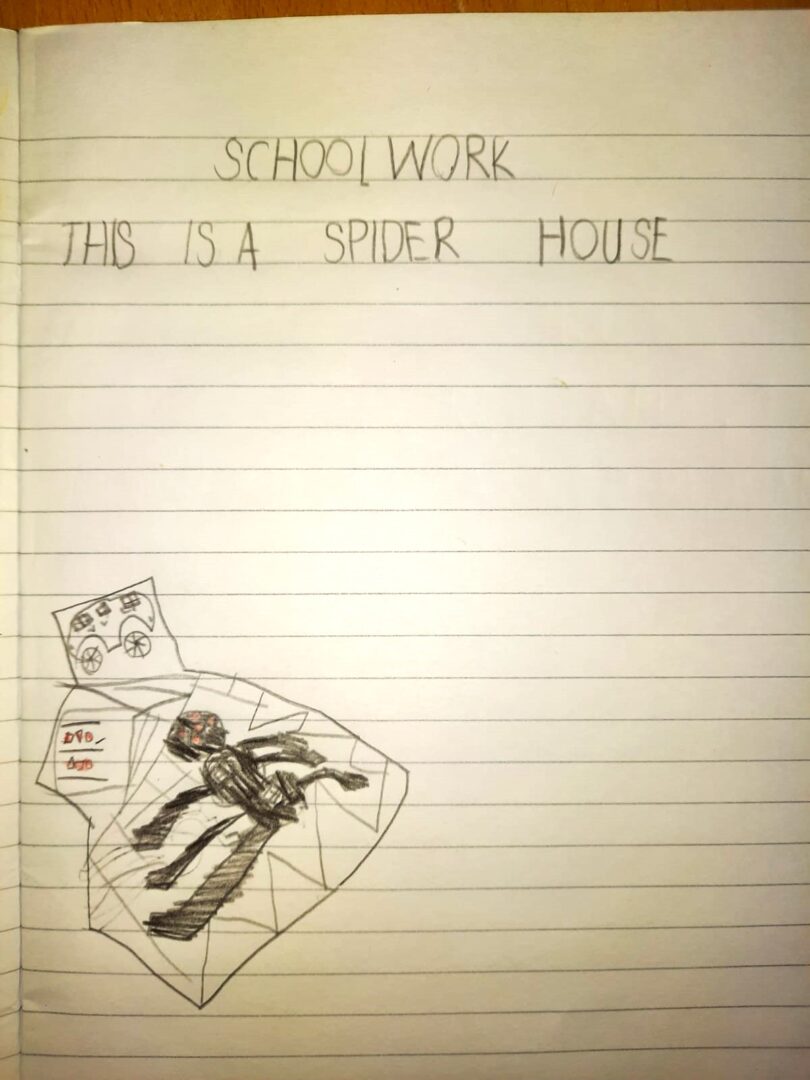 SCHOOL WORK
THIS IS A SPIDER HOUSE